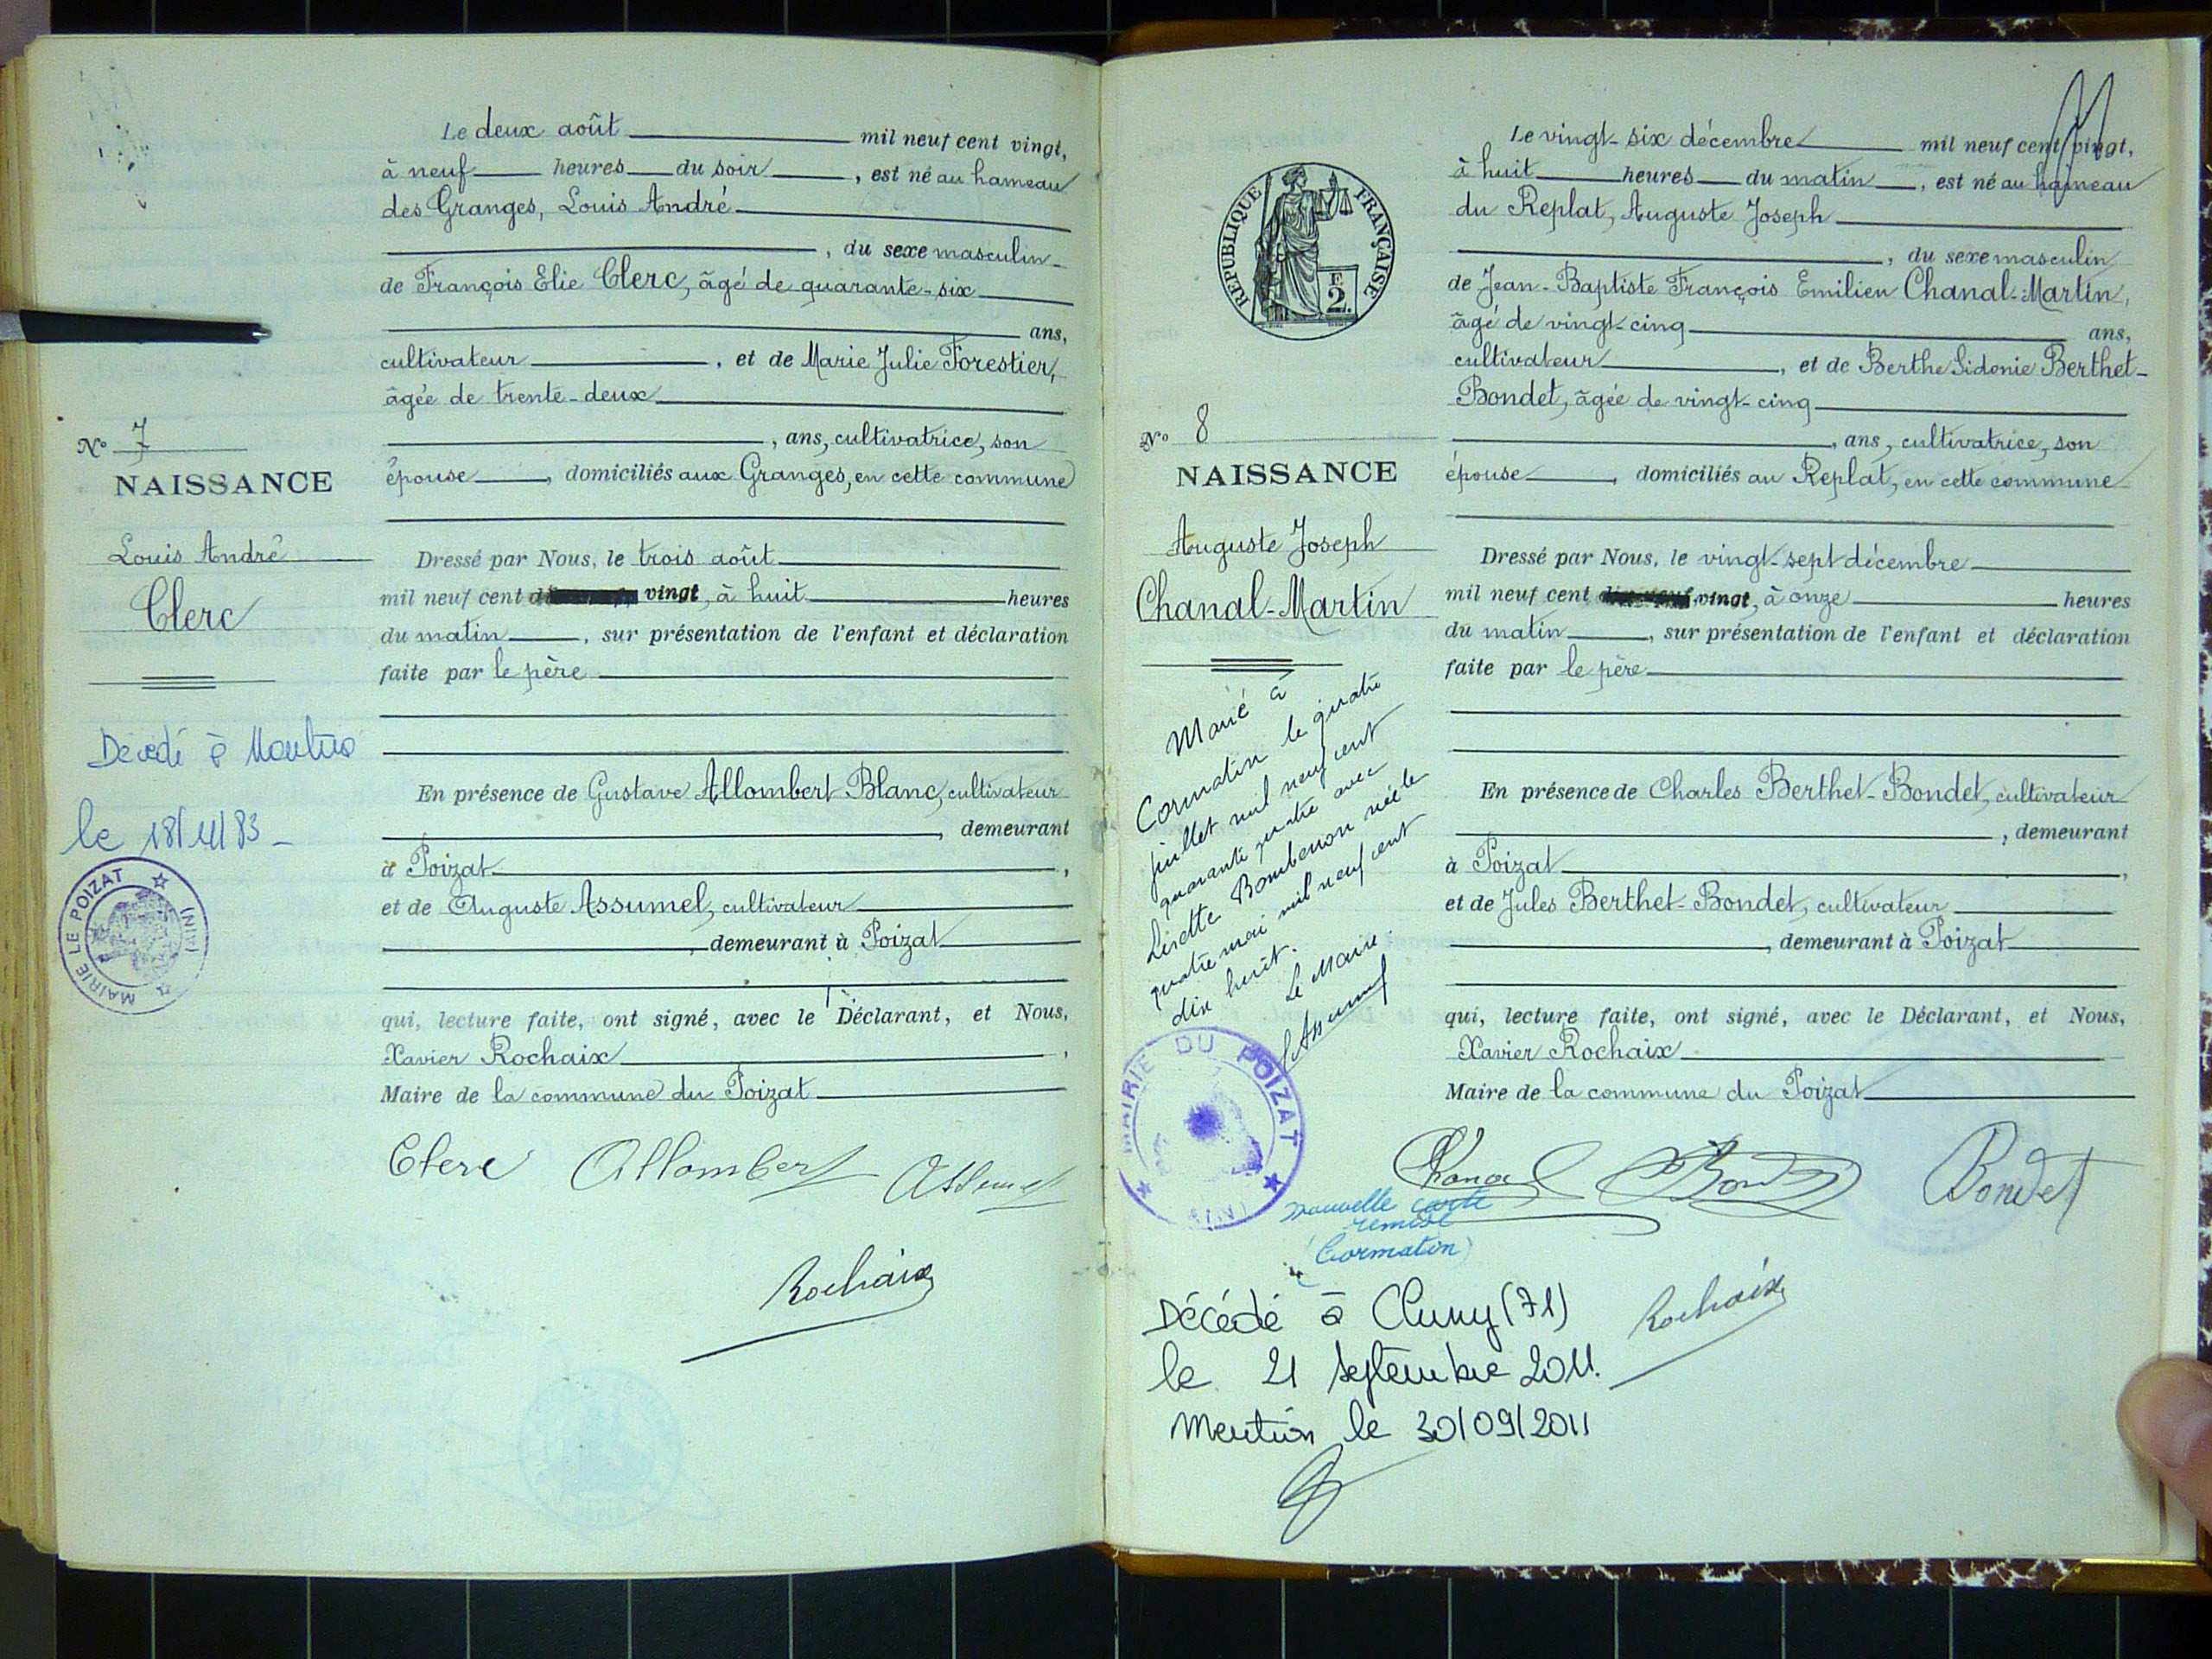 Le deux août mil neuf cent vingt,
à neuf heures du soir, est né au hameau
des Granges, Louis André
, du sexe masculin
de François Elie Clerc, âgé de quarante-six
ans,
cultivateur, et de Marie Julie Forestier,
âgée de trente-deux
, ans, cultivatrice, son
épouse, domiciliés aux Granges, en cette commune
Dressé par Nous, le trois août
mil neuf cent vingt, à huit heures
du matin, sur présentation de l'enfant et déclaration
faite par le père
En présence de Gustave Allombert Blanc, cultivateur
, demeurant
à Poizat,
et de Auguste Assumel, cultivateur
, demeurant à Poizat
qui, lecture faite, ont signé, avec le Déclarant, et Nous,
Xavier Rochaix,
Maire de la commune du Poizat
Clerc Allombert Assumel
Rochaix
N° 7
NAISSANCE
Louis André
Clerc
Décédé à
le 18/ /83
MAIRIE LE POIZAT (AIN)
11
Le vingt-six décembre mil neuf cent vingt,
à huit heures du matin, est né au hameau
du Replat, Auguste Joseph
, du sexe masculin
de Jean-Baptiste François Emilien Chanal-Martin,
âgé de vingt-cinq ans,
cultivateur, et de Berthe Sidonie Berthet-
Bondet, âgée de vingt-cinq
, ans, cultivatrice, son
épouse, domiciliés au Replat, en cette commune
Dressé par Nous, le vingt-sept décembre
mil neuf cent vingt, à onze heures
du matin, sur présentation de l'enfant et déclaration
faite par le père
En présence de Charles Berthet-Bondet, cultivateur
, demeurant
à Poizat,
et de Jules Berthet-Bondet, cultivateur
, demeurant à Poizat
qui, lecture faite, ont signé, avec le Déclarant, et Nous,
Xavier Rochaix
Maire de la commune du Poizat
Chanal Bondet Bondet
Rochaix
RÉPUBLIQUE FRANÇAISE
F.
2.
N° 8
NAISSANCE
Auguste Joseph
Chanal-Martin
Marié à
Cormatin le quatre
juillet mil neuf cent
quarante quatre avec
Lisette née le
quatre mai mil neuf cent
dix huit.
Le Maire.
Assumel
MAIRIE DU POIZAT (AIN)
nouvelle carte
remise
(Cormatin)
Décédé à Cluny (71)
le 21 septembre 2011.
Mention le 30/09/2011